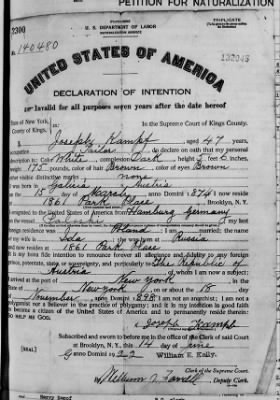 PETITION FOR NATURALIZATION
2300
U. S. DEPARTMENT OF LABOR
NATURALIZATION SERVICE
No. 140480
132045
UNITED STATES OF AMERICA
DECLARATION OF INTENTION
Invalid for all purposes seven years after the date hereof
State of New York,
County of Kings,
In the Supreme Court of Kings County.
I, Joseph Kampf, aged 47 years,
occupation Tailor, do declare on oath that my personal
description is: Color White, complexion Dark, height 5 feet inches,
weight 175 pounds, color of hair Brown, color of eyes Brown
other visible distinctive marks none
I was born in Galicia Austria
on the 15 day of March, anno Domini 1874; I now reside
at 1861 Park Place, Brooklyn, N. Y.
I emigrated to the United States of America from Hamburg Germany
on the vessel; my last
foreign residence was Poland; I am married; the name
of my wife is Ida; she was born in Russia
and now resides at 1861 Park Place
It is my bona fide intention to renounce forever all allegiance and fidelity to any foreign
prince, potentate, state, or sovereignty, and particularly to The Republic of
Austria of whom I am now a subject;
I arrived at the port of New York, in the
State of New York, on or about the 18 day
of November, anno Domini 1898; I am not an anarchist; I am not a
polygamist nor a believer in the practice of polygamy; and it is my intention in good faith
to become a citizen of the United States of America and to permanently reside therein:
SO HELP ME GOD.
Joseph Kampf
Subscribed and sworn to before me in the office of the Clerk of said
Court at Brooklyn, N. Y., this 14 day of June
anno Domini 1922
[SEAL]
William E. Kelly,
Clerk of the Supreme Court.
By William J. Farrell
Deputy Clerk.